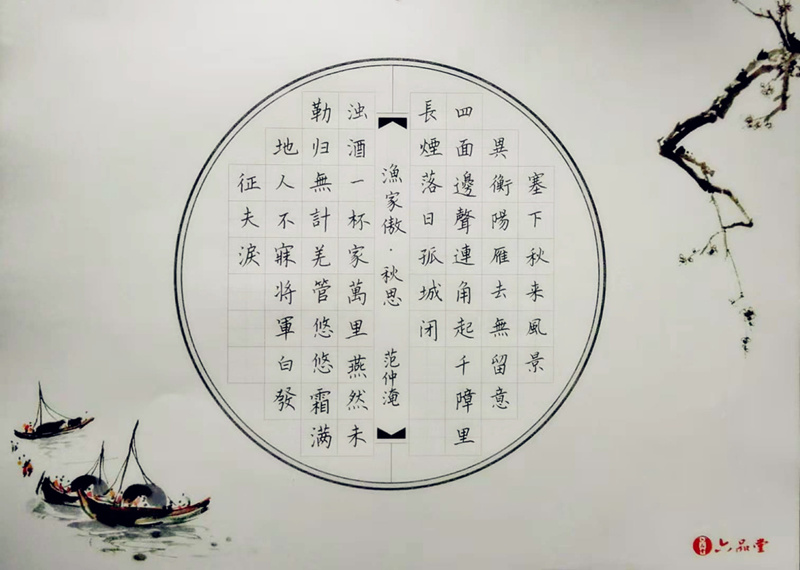 塞下秋来風景
異衡陽雁去無留意
四面邊聲連角起千障里
長煙落日孤城闭
漁家傲·秋思 范仲淹
浊酒一杯家萬里燕然未
勒归無計羌管悠悠霜满
地人不寐将軍白發
征夫淚
六品堂